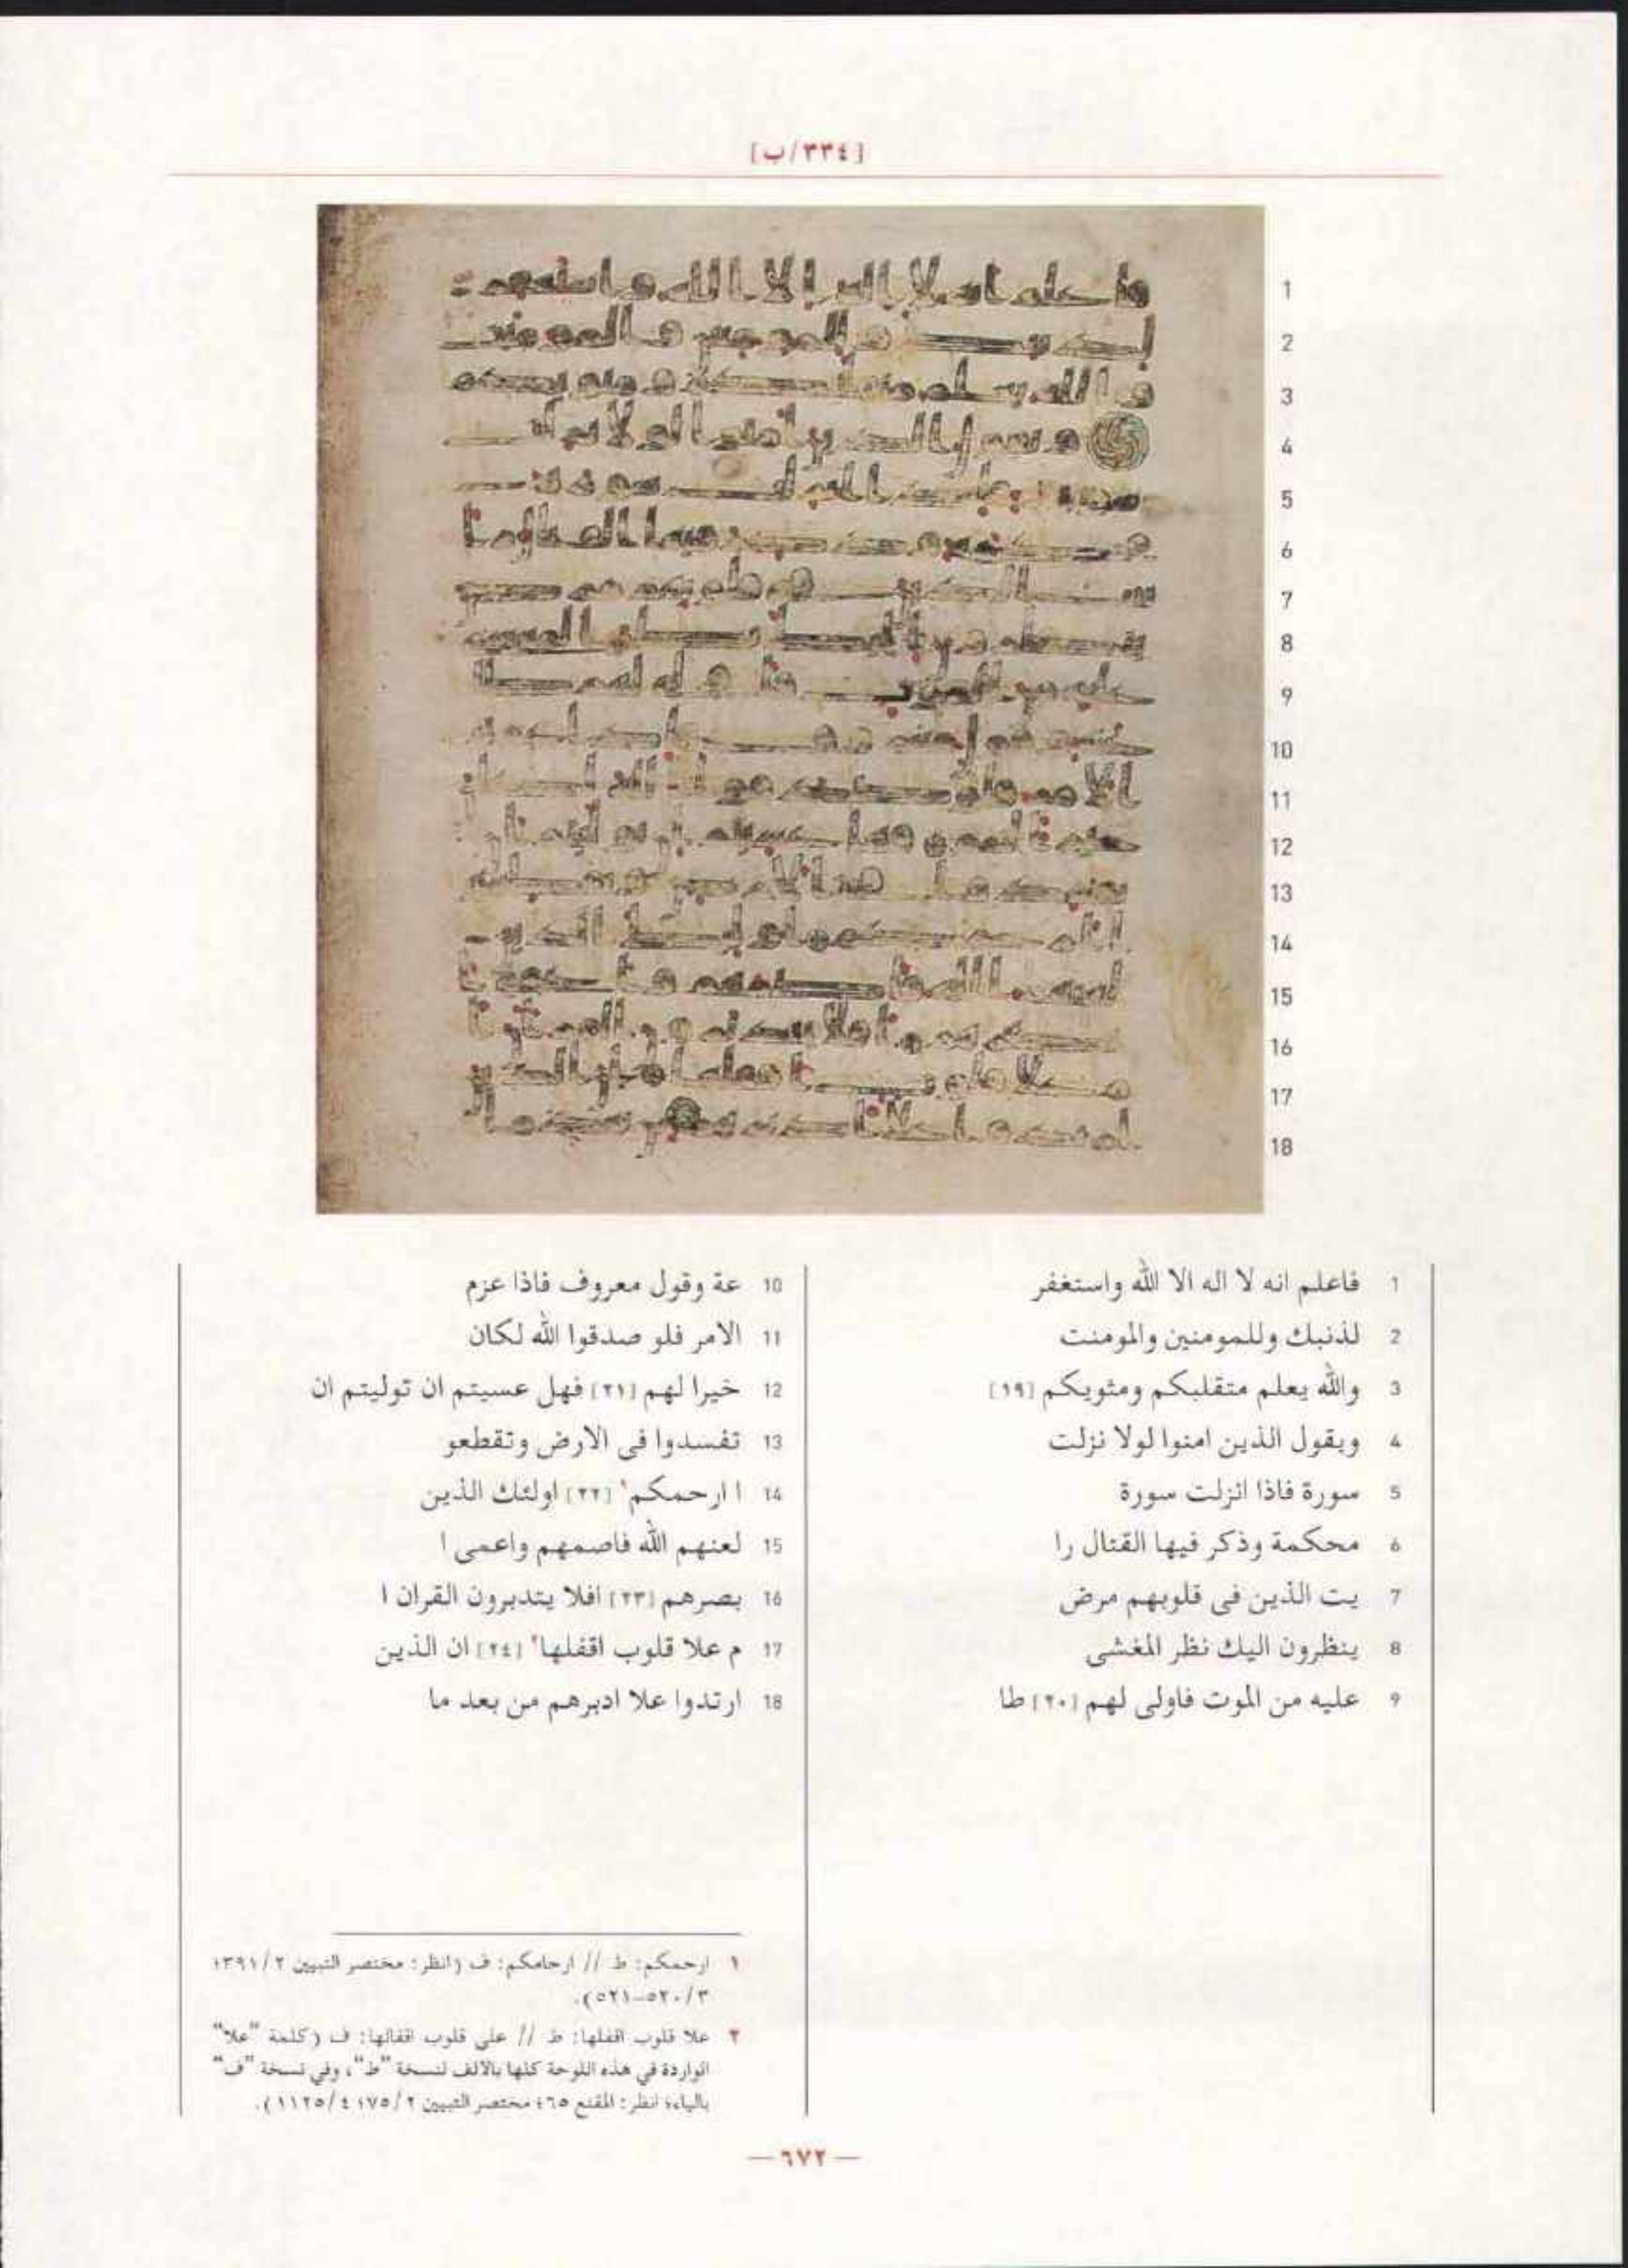 [٣٣٤/ب]
1
2
3
4
5
6
7
8
9
10
11
12
13
14
15
16
17
18
1 فاعلم انه لا اله الا الله واستغفر
2 لذنبك وللمومنين والمومنت
3 والله يعلم متقلبكم ومثويكم [١٩]
4 ويقول الذين امنوا لولا نزلت
5 سورة فاذا انزلت سورة
6 محكمة وذكر فيها القتال را
7 يت الذين فى قلوبهم مرض
8 ينظرون اليك نظر المغشى
9 عليه من الموت فاولى لهم [٢٠] طا
10 عة وقول معروف فاذا عزم
11 الامر فلو صدقوا الله لكان
12 خيرا لهم [٢١] فهل عسيتم ان توليتم ان
13 تفسدوا فى الارض وتقطعو
14 ا ارحمكم١ [٢٢] اولئك الذين
15 لعنهم الله فاصمهم واعمى ا
16 بصرهم [٢٣] افلا يتدبرون القران ا
17 م علا قلوب اقفلها٢ [٢٤] ان الذين
18 ارتدوا علا ادبرهم من بعد ما
١ ارحمكم: ط // ارحامكم: ف (انظر: مختصر التبيين ٢/١٣٩١
٣/٥٢٠-٥٢١).
٢ علا قلوب اقفلها: ط // على قلوب اقفالها: ف (كلمة "علا"
الواردة في هذه اللوحة كلها بالالف لنسخة "ط"، وفي نسخة "ف"
بالياء؛ انظر: المقنع ٦٥؛ مختصر التبيين ٢/٧٥؛ ٤/١١٢٥).
— ٦٧٢ —